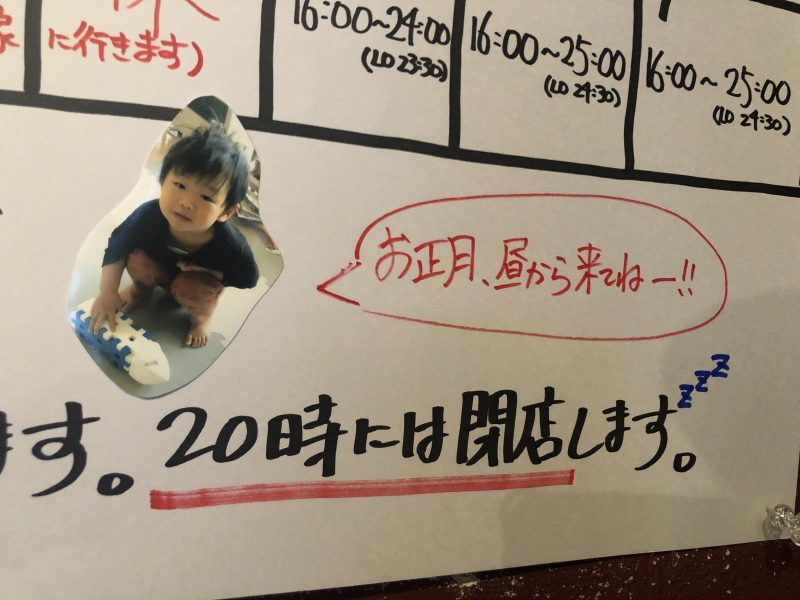 休
に行きます)
16:00~24:00
(LO 23:30)
16:00~25:00
(LO 24:30)
16:00~25:00
(LO 24:30)
お正月、昼から来てねー!!
ます。20時には閉店します。zzz